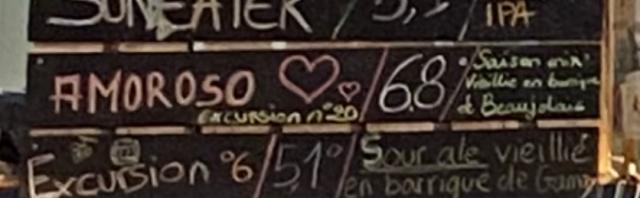 SUNEATER / 5,5° / IPA
AMOROSO ♡♡ / 6.8° / Saison mix
Excursion n°20
Vieillie en barrique
de Beaujolais
Excursion °6 / 5,1° / Sour ale vieillie
en barrique de Gamay